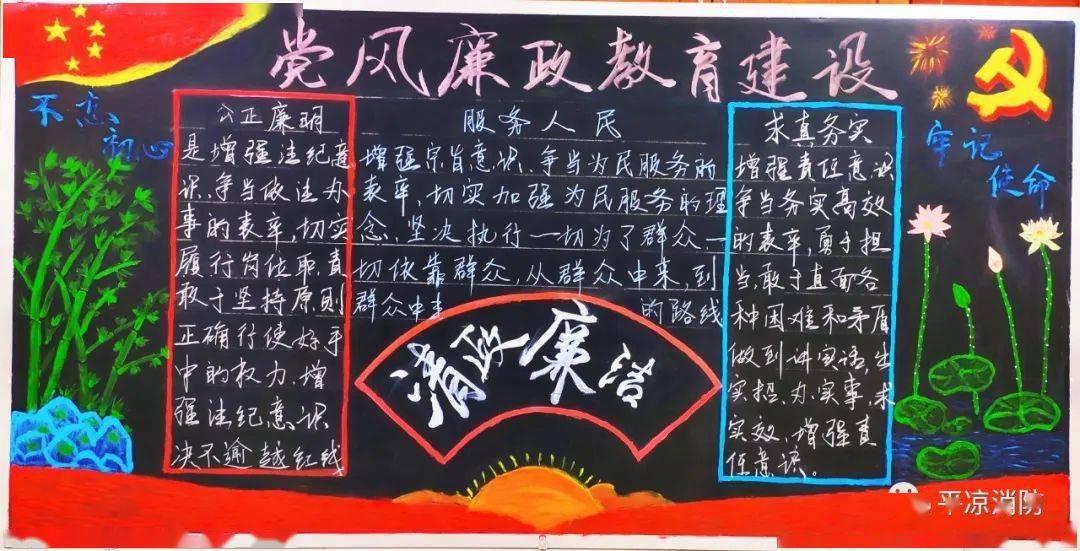 党风廉政教育建设
不忘
初心
公正廉明
是增强法纪意
识、争当依法办
事的表率,切实
履行岗位职责
敢于坚持原则
正确行使好手
中的权力、增
强法纪意识
决不逾越红线
服务人民
增强宗旨意识、争当为民服务的
表率,切实加强为民服务的理
念、坚决执行一切为了群众一
切依靠群众,从群众中来,到
群众中去 的路线
清政廉洁
求真务实
增强责任意识
争当务实高效
的表率,勇于担
当,敢于直面各
种困难和矛盾
做到讲实话,出
实招、办实事,求
实效、增强责
任意识。
牢记
使命
平凉消防